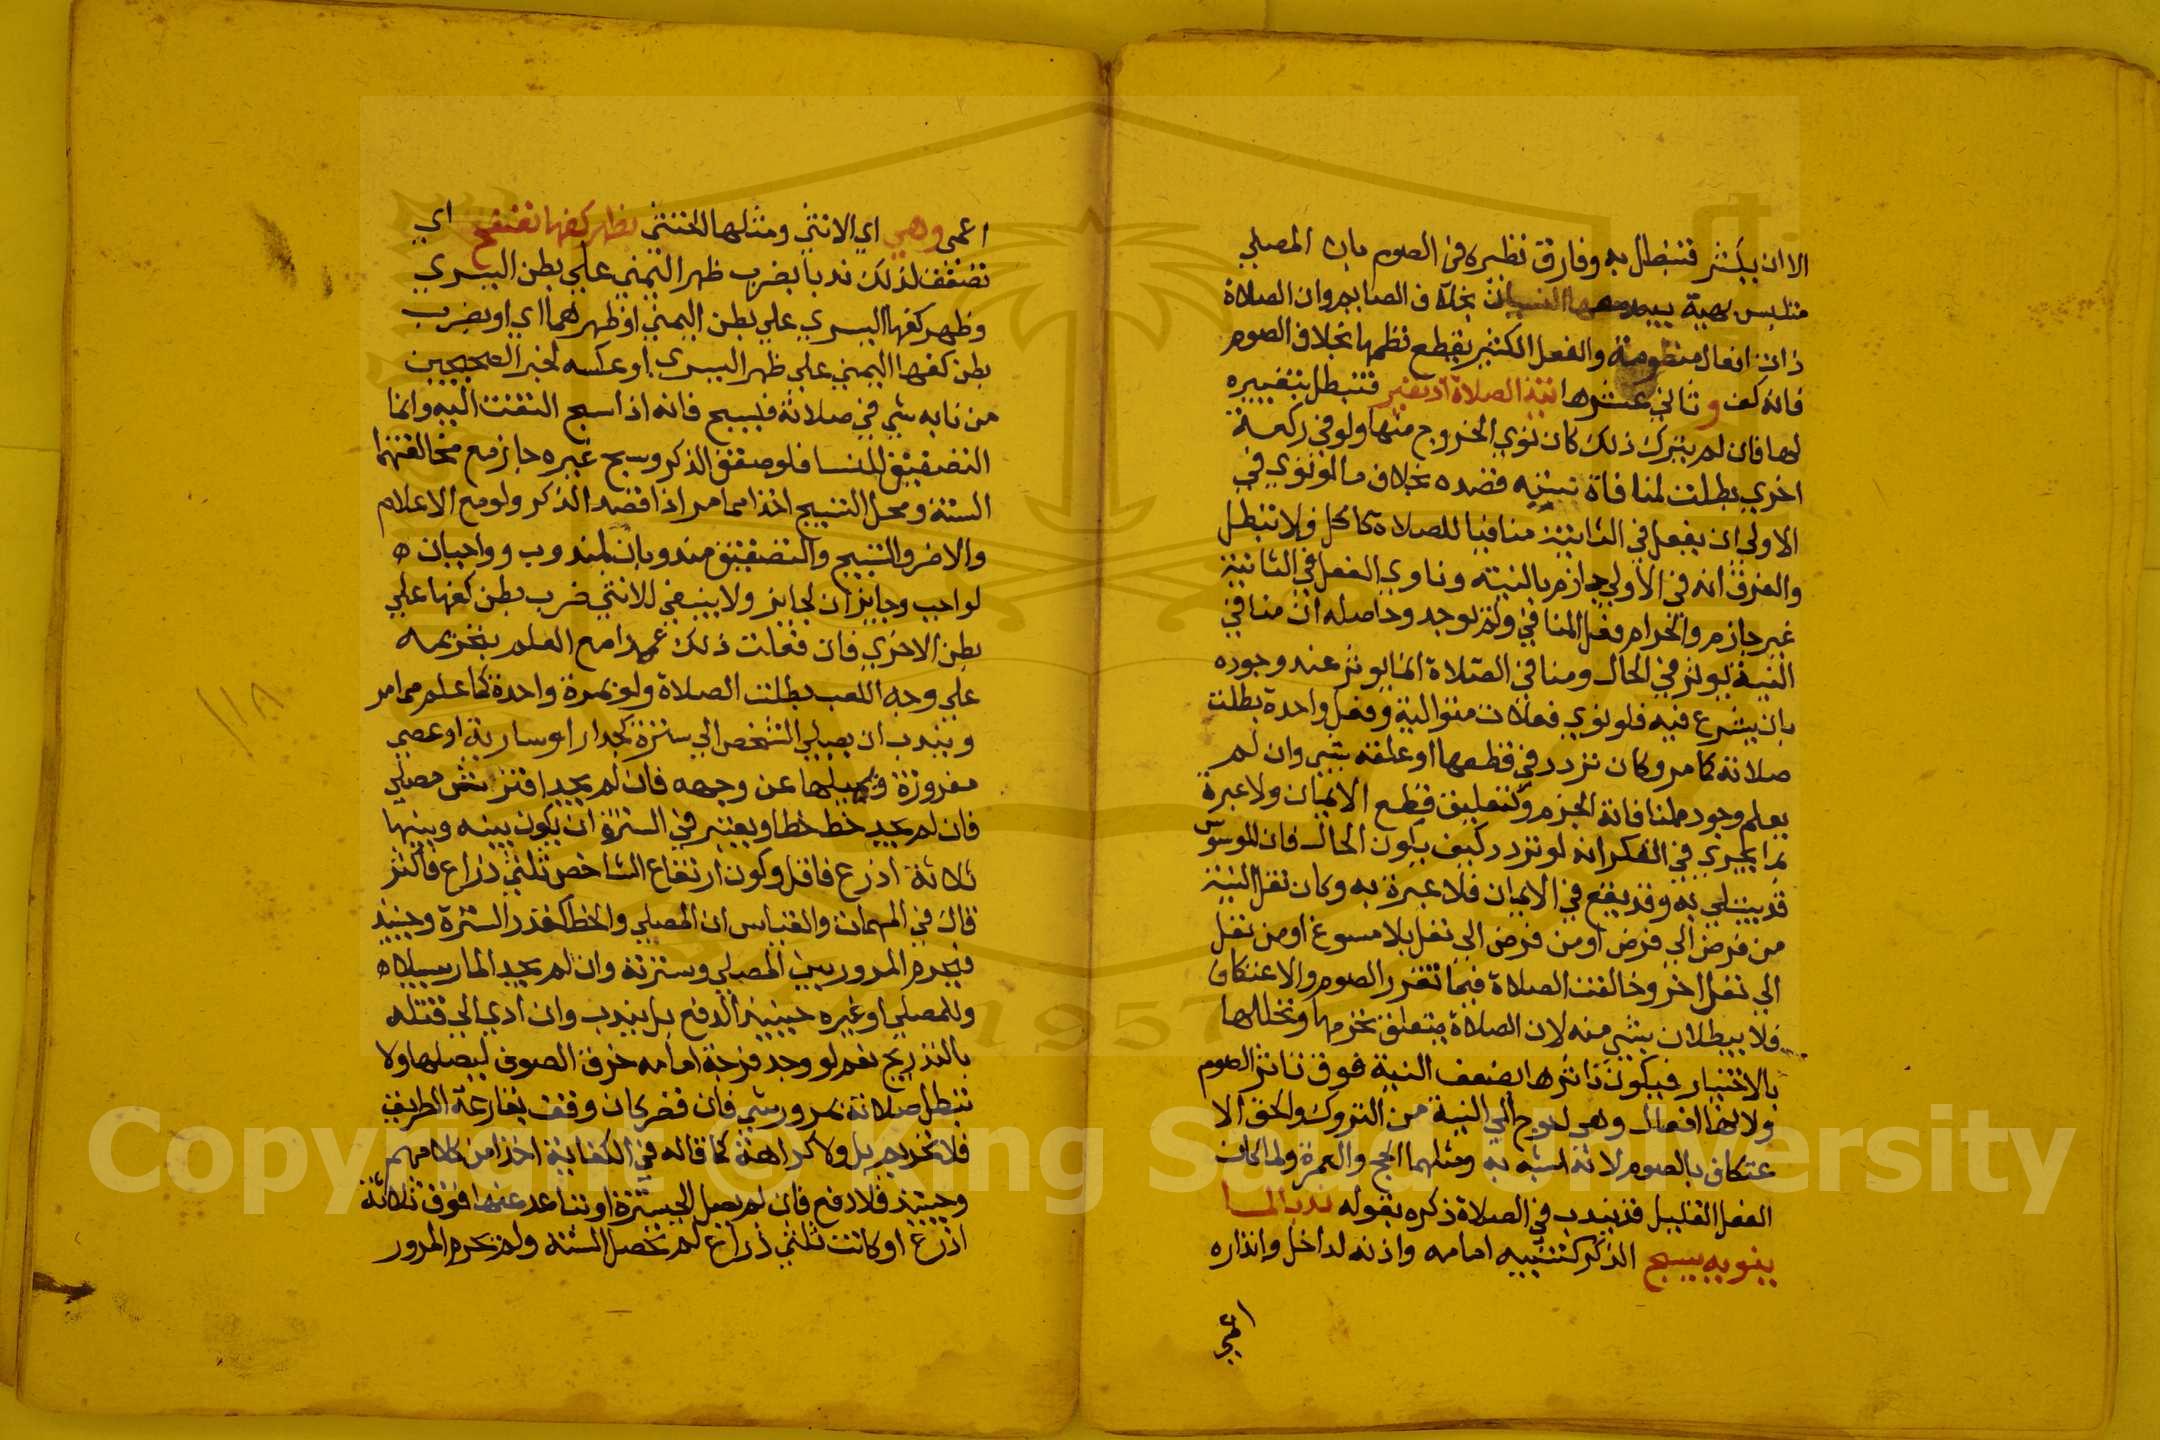 الا ان يكثر فتبطل به وفارق نظيره في الصوم بان المصلي
متلبس بهية يبعد معها النسيان بخلاف الصايم وان الصلاة
ذات افعال منظومة والفعل الكثير يقطع نظمها بخلاف الصوم
فانه كف و ثاني عشرها نية الصلاة اذ تغير فتبطل بتغييره
لها فان لم يترك ذلك كان نوي الخروج منها ولو في ركعة
اخري بطلت لمنافاة نيته قصده بخلاف ما لو نوي في
الاولي ان يفعل في الثانية منافيا للصلاة كاكل فلا تبطل
والفرق انه في الاولي جازم بالنية وناوي الفعل في الثانية
غير جازم والحرام فعل المنافي ولم يوجد وحاصله ان منافي
النية يوثر في الحال ومنافي الصلاة انما يوثر عند وجوده
بان يشرع فيه فلو نوي فعلات متوالية وفعل واحدة بطلت
صلاته كما مر وكان تردد في قطعها او علقه بشي وان لم
يعلم وجوده لمنافاته الجزم وكتعليق قطع الايمان ولا عبرة
بما يجري في الفكر انه لو تردد كيف يكون الحال فان الموسوس
قد يبتلي به وقد يقع في الايمان فلا عبرة به وكان نقل النية
من فرض الي فرض او من فرض الي نفل بلا مسوغ او من نفل
الي نفل اخر وخالفت الصلاة فيما تقرر الصوم والاعتكاف
فلا يبطلان بشي منه لان الصلاة يتعلق تحرمها وتحللها
بالاختيار فيكون تاثرها بضعف النية فوق تاثر الصوم
ولانها افعال وهي احوج الي النية من التروك والحق الا
عتكاف بالصوم لانه اشبه به ومثلهما الحج والعمرة ولما كان
الفعل القليل قد يندب في الصلاة ذكره بقوله ندبا لما
ينوبه يسبح الذكر كتنبيه امامه واذنه لداخل وانذاره
اعمي
اعمي وهي اي الانثي ومثلها الخنثي بظهر كفها تصفح اي
تصفق لذلك ندبا بضرب ظهر اليمني علي بطن اليسري
وظهر كفها اليسري علي بطن اليمني او ظهرهما اي او بضرب
بطن كفها اليمني علي ظهر اليسري او عكسه لخبر الصحيحين
من نابه شي في صلاته فليسبح فانه اذا سبح التفت اليه وانما
التصفيق للنسا فلو صفق الذكر وسبح غيره جاز مع مخالفتهما
السنة ومحل التسبيح اخذا مما مر اذا قصد الذكر ولو مع الاعلام
والا ضر والتسبيح والتصفيق مندوبان لمندوب وواجبان ه
لواجب وجايزان لجايز ولا ينبغي للانثي ضرب بطن كفها علي
بطن الاخري فان فعلت ذلك عمدا مع العلم بتحريمه
علي وجه اللعب بطلت الصلاة ولو بمرة واحدة كما علم مما مر
ويندب ان يصلي الشخص الي سترة كجدار او سارية او عصي
مغروزة ويميلها عن وجهه فان لم يجد افترش مصلي
فان لم يجد خط خطا ويعتبر في السترة ان يكون بينه وبينها
ثلاثة اذرع فاقل وكون ارتفاع الشاخص ثلثي ذراع فاكثر
قال في المهمات والقياس ان المصلي والخط كقدر السترة وحينيذ
فيحرم المرور بين المصلي وسترته وان لم يجد المار سبيلا ه
وللمصلي او غيره حينيذ الدفع بل يندب وان ادي الي قتله
بالتدريج نعم لو وجد فرجة امامه خرق الصوف ليصلها ولا
تبطل صلاته بمرور شي فان قصر كان وقف بقارعة الطريق
فلا تحريم بل ولا كراهة كما قاله في الكفاية اخذا من كلامهم
وحينيذ فلا دفع فان لم يصل الي سترة او تباعد عنها فوق ثلاثة
اذرع او كانت ثلثي ذراع لم تحصل السنة ولم يحرم المرور
١١٨
1957
Copyright © King Saud University